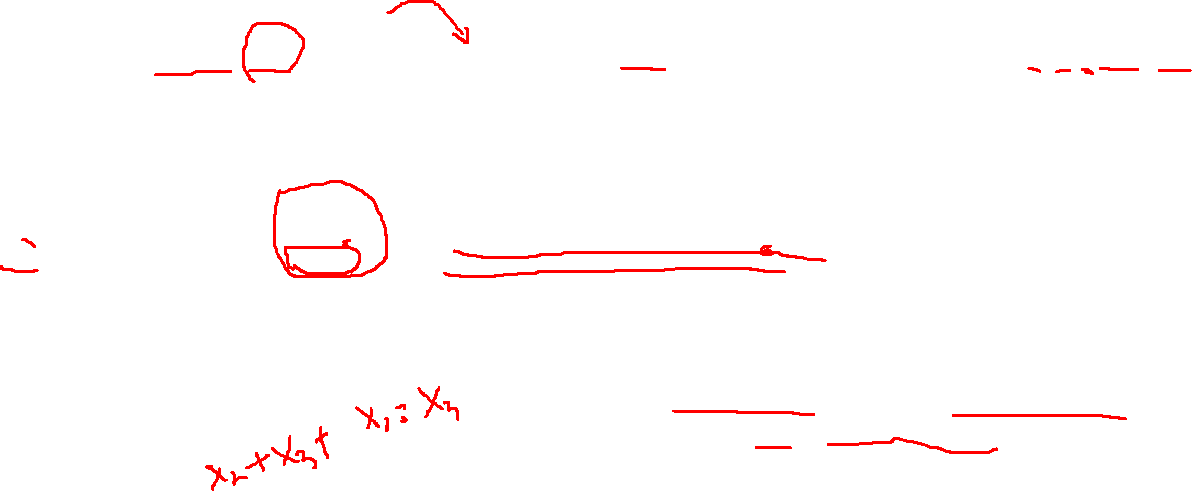 x₂+x₃+ x₁=x₃